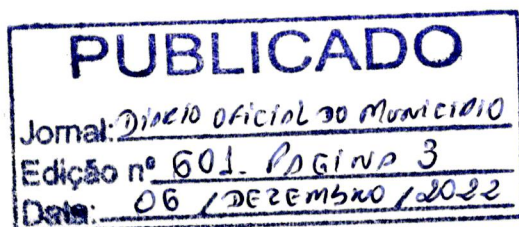 PUBLICADO
Jornal: DIÁRIO OFICIAL DO MUNICIPIO
Edição nº 601. PAGINA 3
Data: 06 / DEZEMBRO / 2022